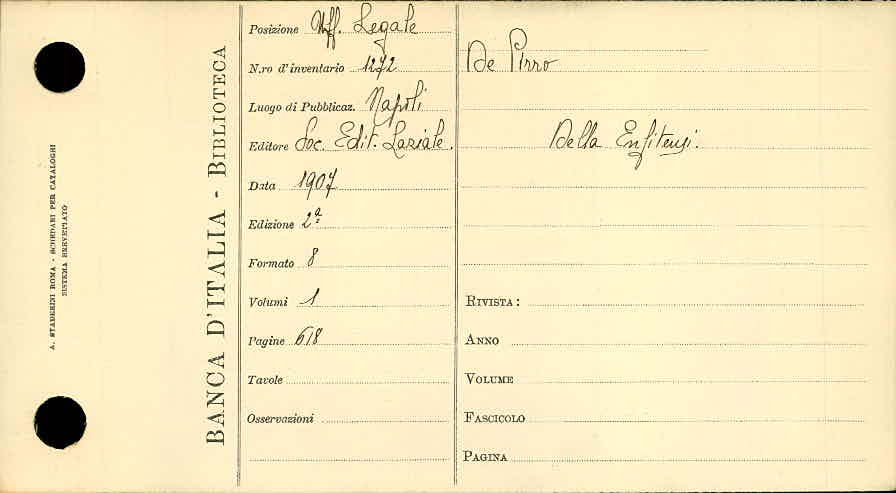 A. STADERINI ROMA - SCHEDARI PER CATALOGHI
SISTEMA BREVETTATO
BANCA D'ITALIA - BIBLIOTECA
Posizione Uff. Legale
N.ro d'inventario 1272
Luogo di Pubblicaz. Napoli
Editore Soc. Edit. Laziale.
Data 1907
Edizione 2ª
Formato 8
Volumi 1
Pagine 618
Tavole
Osservazioni
De Pirro
Della Enfiteusi.
RIVISTA:
ANNO
VOLUME
FASCICOLO
PAGINA